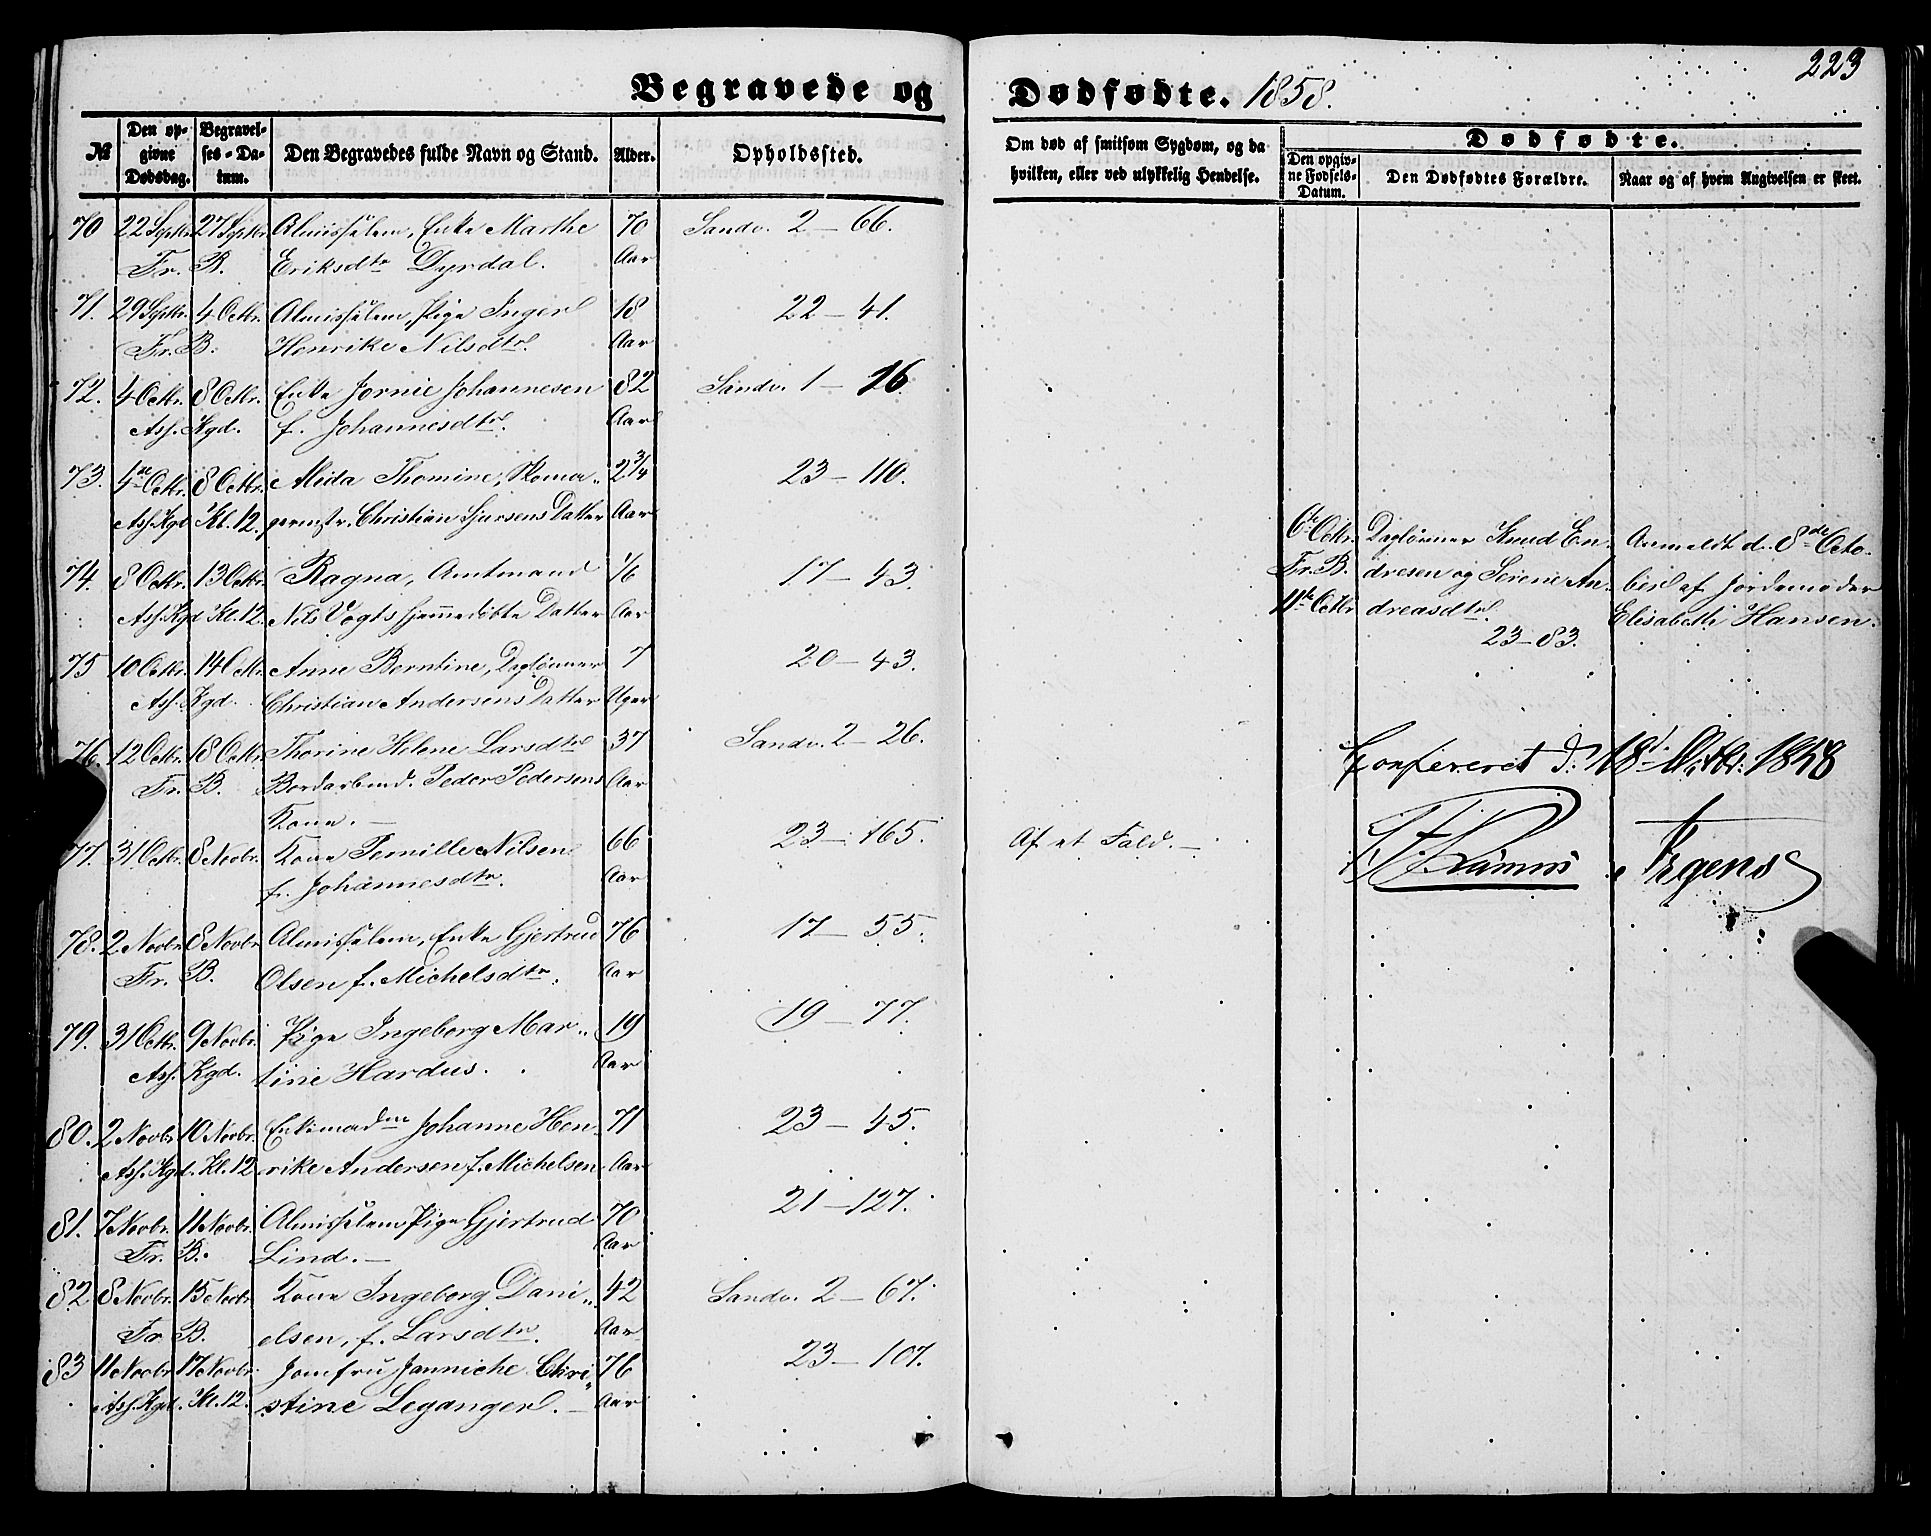 223
Begravede og Dødfødte. 1858.
№
Den opgivne Dødsdag.
Begravelses-Datum.
Den Begravedes fulde Navn og Stand.
Alder.
Opholdssted.
Om død af smitsom Sygdom, og da hvilken, eller ved ulykkelig Hendelse.
Dødfødte.
Den opgivne Fødsels-Datum.
Den Dødfødtes Forældre.
Naar og af hvem Angivelsen er skeet.
70 22 Septbr. 27 Septbr. Almisselem, Enke Marthe 70 Sandv. 2 – 66.
Fr. B. Eriksdtr Dyrdal. Aar
71. 29 Septbr. 4 Octbr. Almisselem, Pige Inger 18 22 – 41.
Fr. B. Henrike Nilsdtr. Aar
72. 4 Octbr. 8 Octbr. Enke Jornie Johannesen 82 Sandv. 1 – 16.
Ass. Kgd. f. Johannesdtr. Aar
73. 4de Octbr. 8 Octbr. Alida Thomine, Skoma„ 2 3/4 23 – 110.
Ass. Kgd Kl. 12. germstr. Christian Sjursens Datter Aar
74. 8 Octbr. 13 Octbr. Ragna, Amtmand 1/6 17 – 43.
Ass. Kgd Kl. 12. Nils Vogts hjemmedøbte Datter Aar
75 10 Octbr. 14 Octbr. Anne Berntine, Daglønner 7 20 – 43.
Ass. Kgd. Christian Andersens Datter Uger
76. 12 Octbr. 18 Octbr. Thorine Helene Larsdtr 37 Sandv. 2 – 26.
Fr. B. Bordarbmd. Peder Pedersens Aar
Kone. –
77. 31 Octbr. 8 Novbr. Kone Pernille Nilsen 66 23 – 165. Af et Fald. –
f. Johannesdtr. Aar
78. 2 Novbr. 8 Novbr. Almisselem, Enke Gjertrud 76 17 – 55.
Fr. B. Olsen f. Michelsdtr. Aar
79. 31 Octbr. 9 Novbr. Pige Ingeborg Mar„ 19 19 – 77.
Ass. Kgd. tine Hardus. Aar
80. 2 Novbr. 10 Novbr. Enkemadm Johanne Hen„ 71 23 – 45.
Ass. Kgd. Kl. 12 rike Andersen f. Michelsen Aar
81. 7 Novbr. 11 Novbr. Almisselem Pige Gjertrud 70 21 – 127.
Fr. B. Lind. – Aar
82 8 Novbr. 15 Novbr. Kone Ingeborg Dani„ 42 Sandv. 2 – 67.
Fr. B. elsen, f. Larsdtr. Aar
83 11 Novbr. 17 Novbr. Jomfru Janniche Chri„ 76 23 – 107.
Ass. Kgd. Kl. 12. stine Leganger. – Aar
6te Octbr. Daglønner Knud En„ Anmeldt d. 8de Octo„
Fr. B. dresen og Serine An„ ber af Jordemoder
11te Octbr. dreasdtr. Elisabeth Hansen.
23 – 83.
Confereret d. 18d Octbr. 1858
Irgens